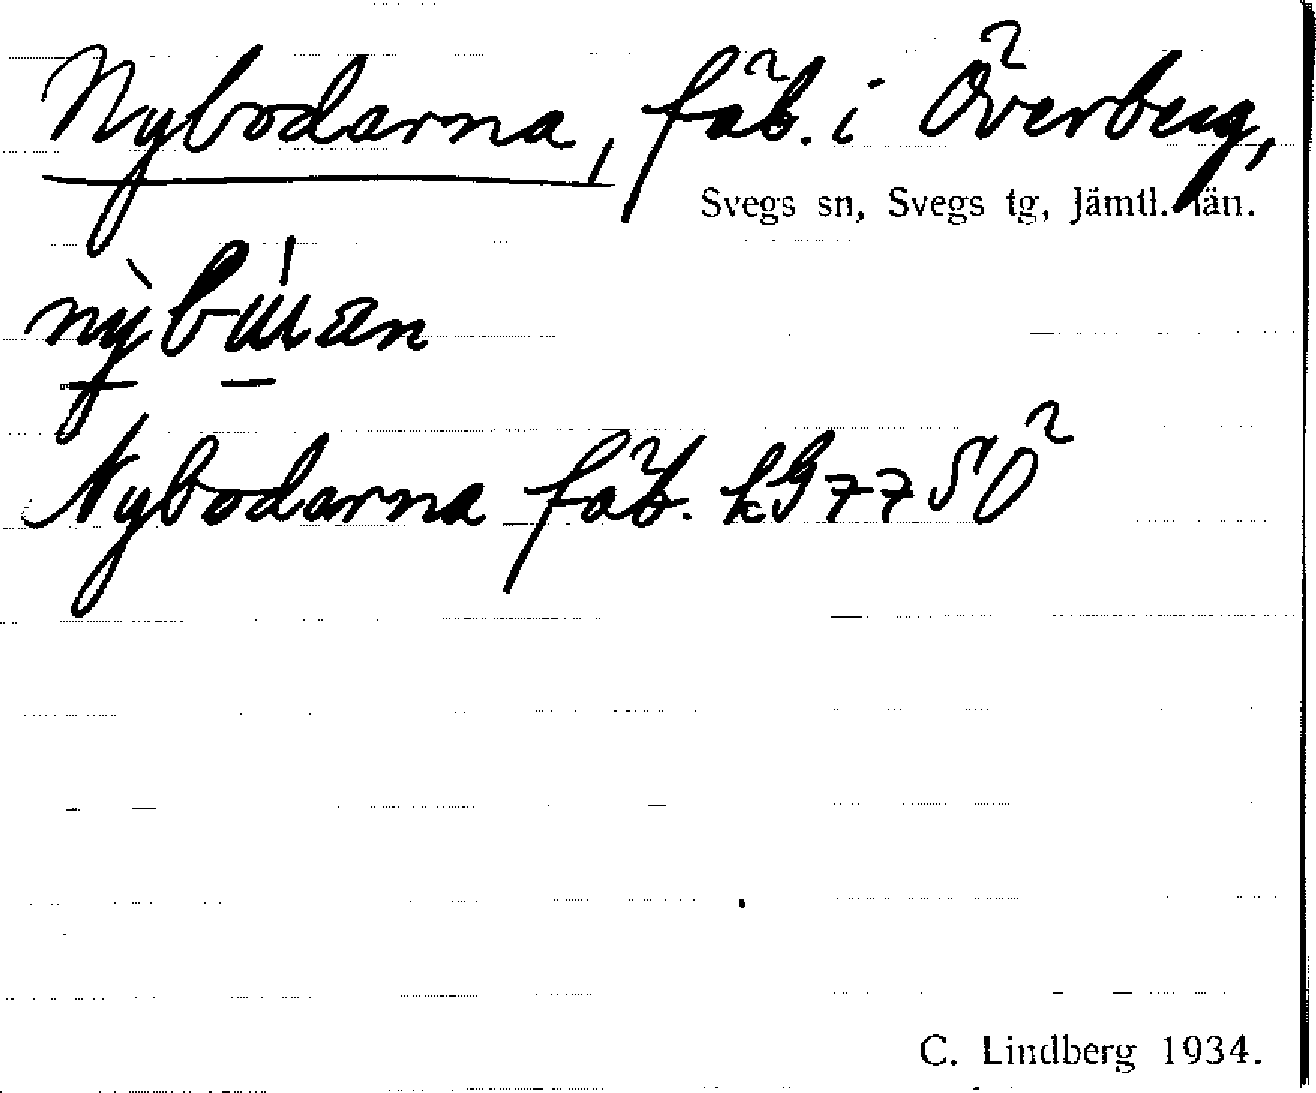 Nybodarna, fäb. i Överberg,
Svegs sn, Svegs tg, Jämtl. län.
Nybodarna fäb. kg 77 SÖ
C. Lindberg 1934.